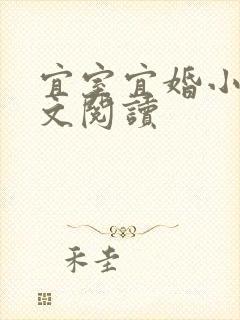 宜室宜婚小
文閱讀
禾圭